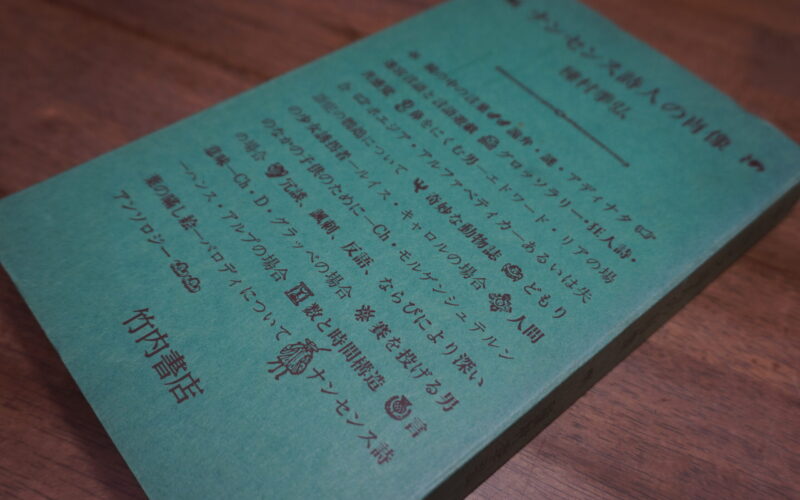 ナンセンス詩人の肖像
種村季弘
鏡の中の言葉 ・謎・アディナタ
言語遊戯 グロッソラリー・狂人詩・
鼻をにくむ男—エドワード・リアの場
合 ポエジア・アルファベティカ—あるいは失
語症の戦略について 奇妙な動物誌 どもり
の少女誘拐者—ルイス・キャロルの場合 人間
のなかの子供のために—Ch・モルゲンシュテルン
の場合 冗談、諷刺、反語、ならびにより深い
意味—Ch・D・グラッベの場合 賽を投げる男
—ハンス・アルプの場合 数と時間構造 言
葉の隠し絵—パロディについて ナンセンス詩
アンソロジー
竹内書店